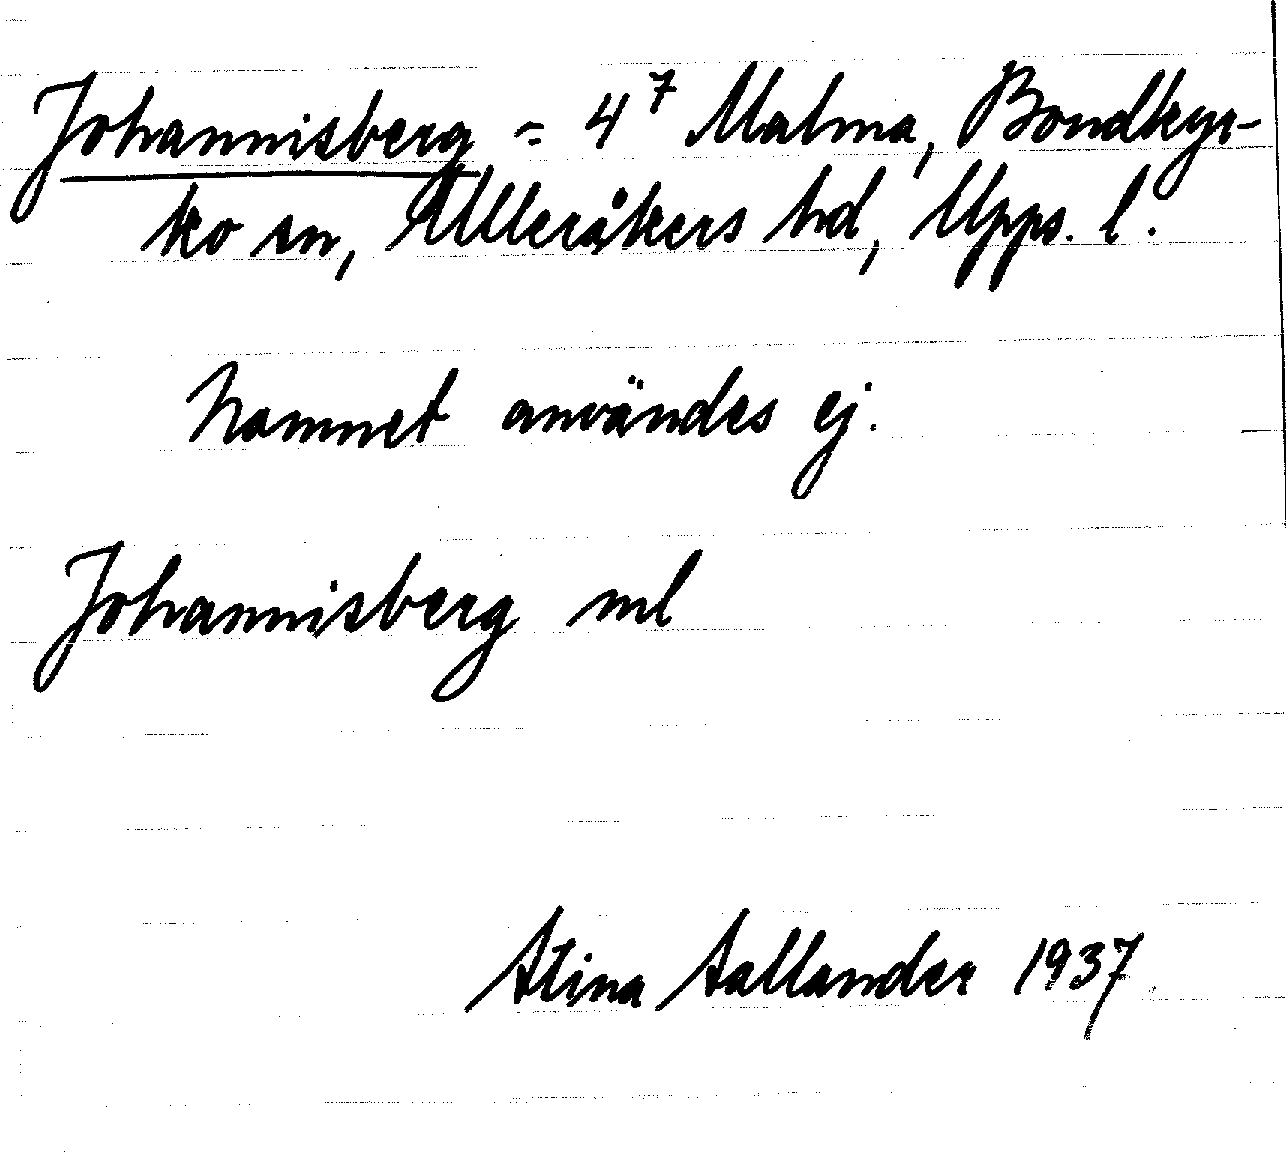 Johannisberg = 4⁷ Malma, Bondkyr-
ko sn, Ulleråkers hd, Upps. l.
Namnet användes ej.
Johannisberg ml
Stina Sallander 1937